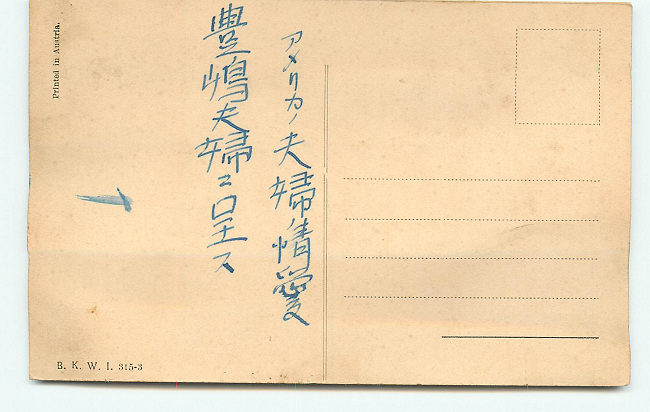 アメリカノ夫婦ノ情愛
豊嶋夫婦ニ呈ス
Printed in Austria.
B. K. W. I. 315-3